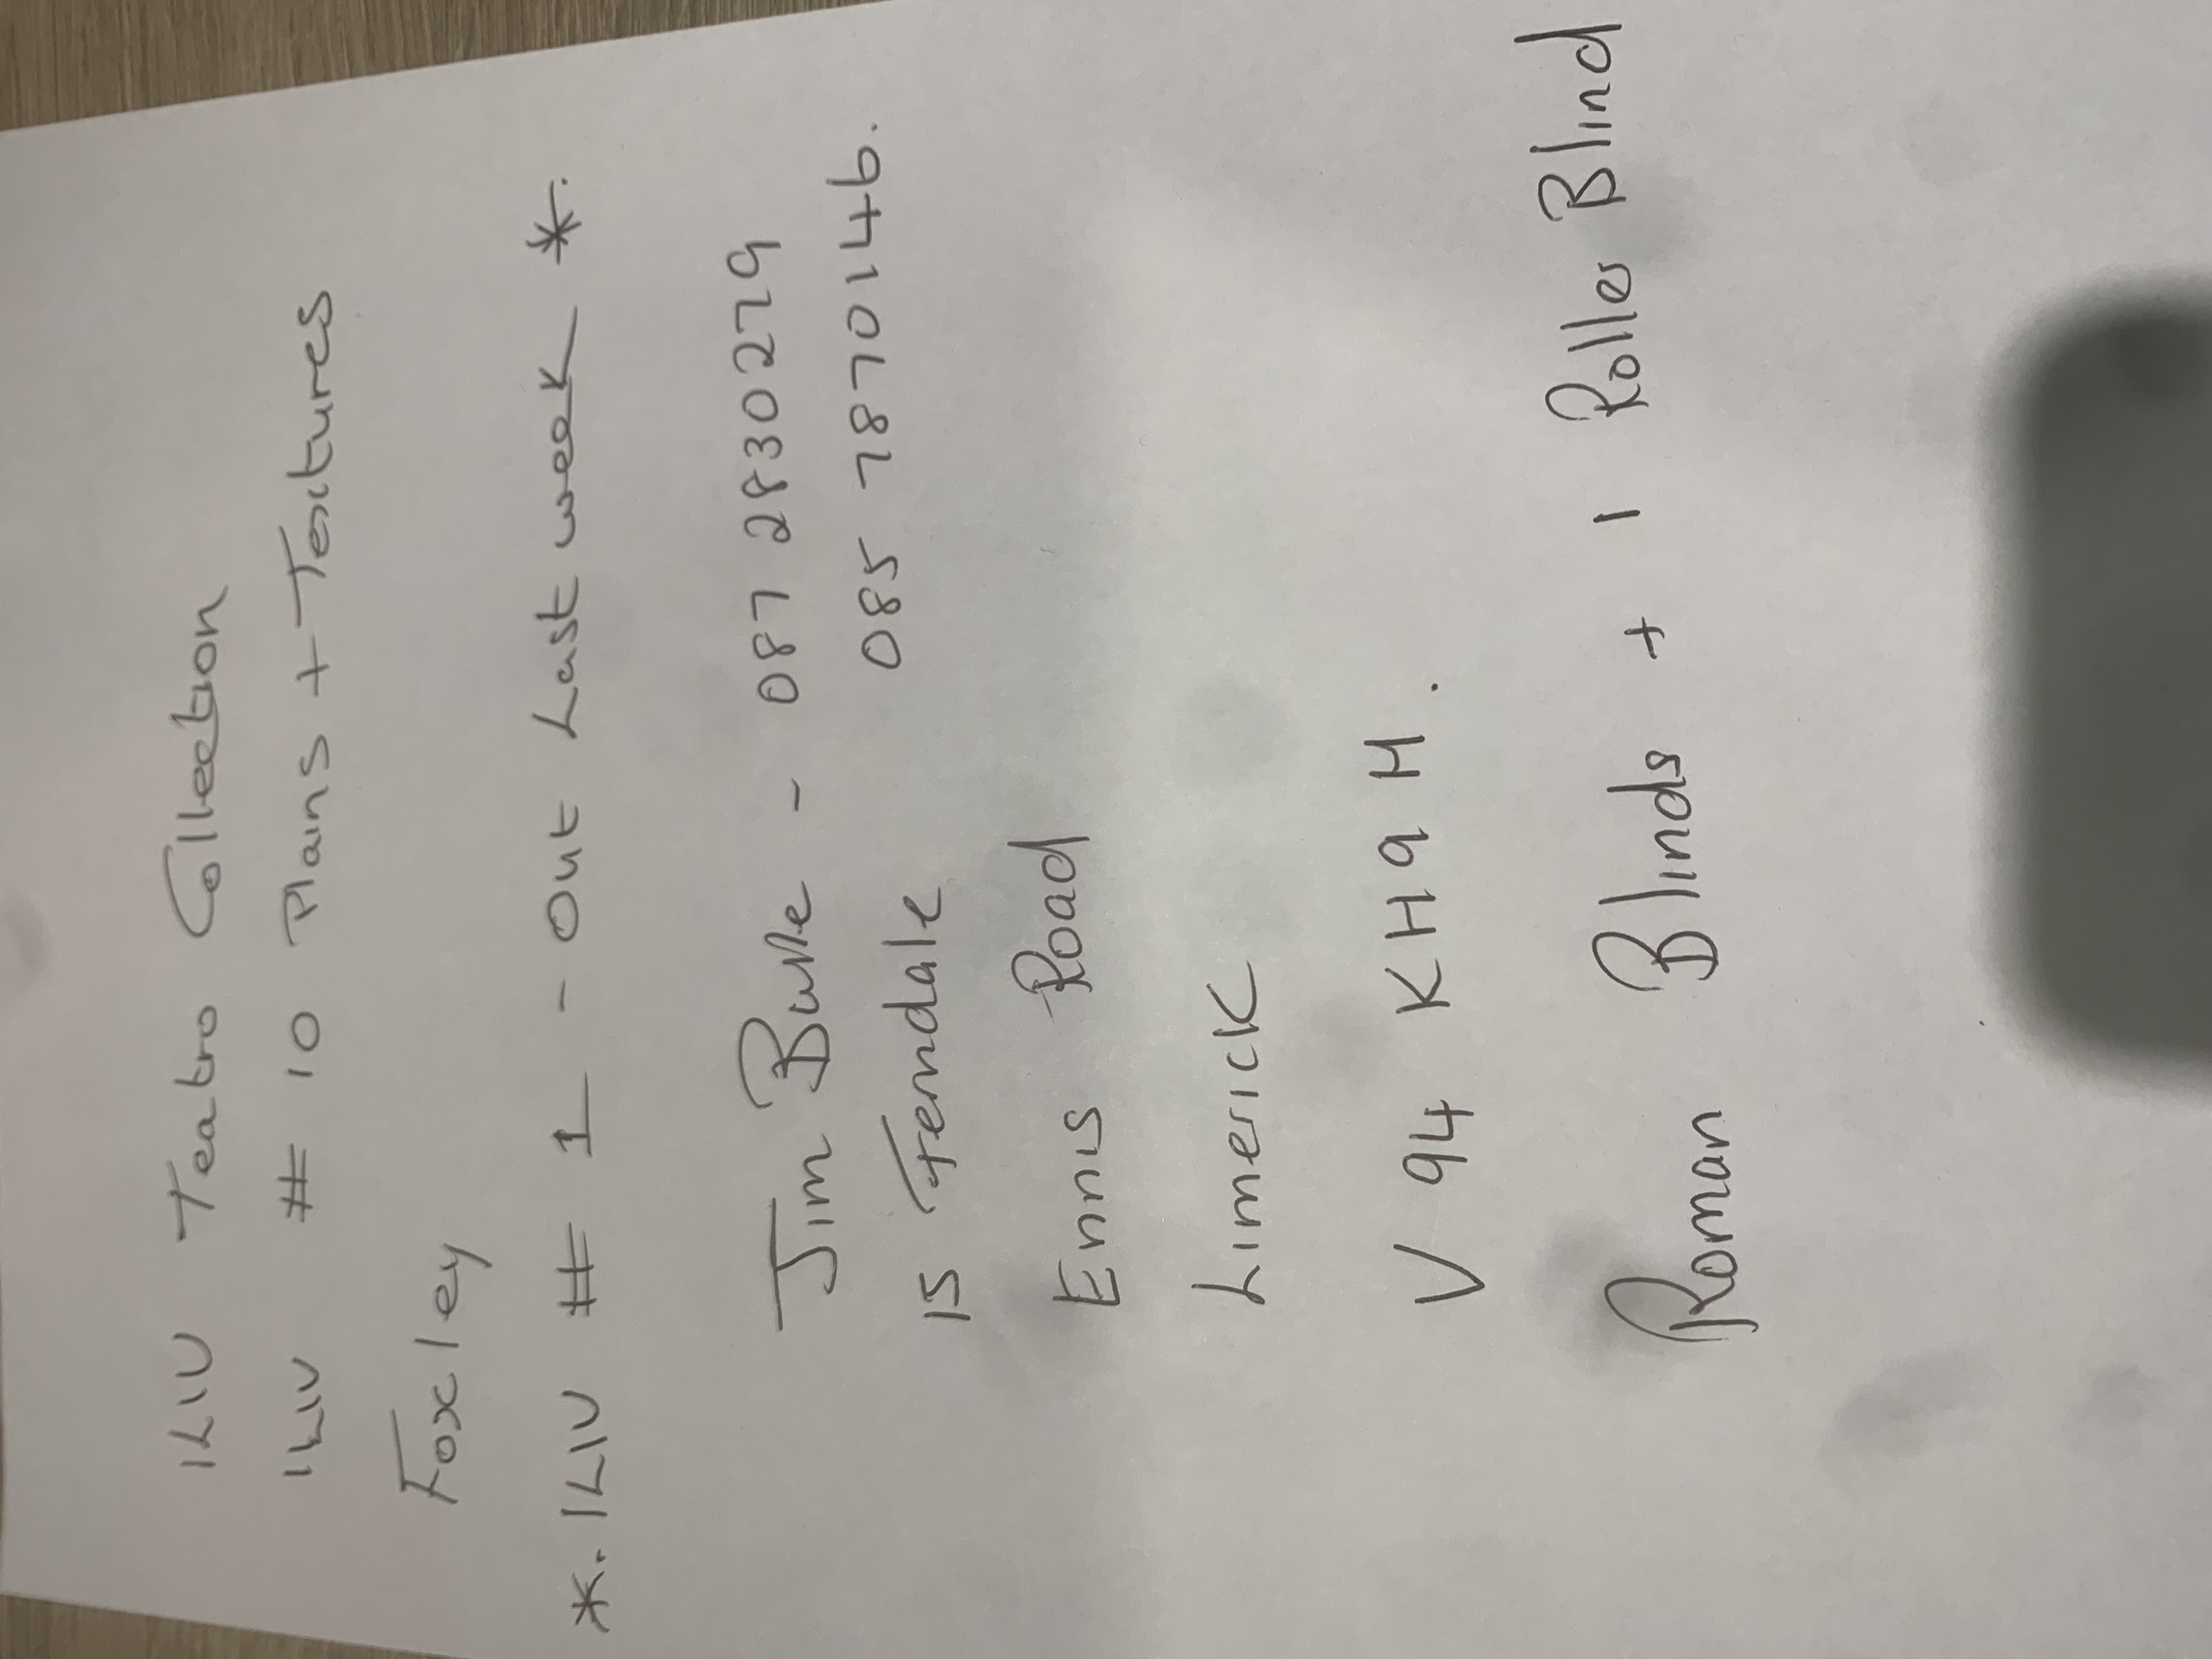 ILIV Teatro Collection
ILIV # 10 Plains + Textures
Foxley
*. ILIV # 1 - Out Last week *.
Jim Burke - 087 2830279
085 7870146.
15 Ferndale
Ennis Road
Limerick
V 94 KH9H.
Roman Blinds + 1 Roller Blind